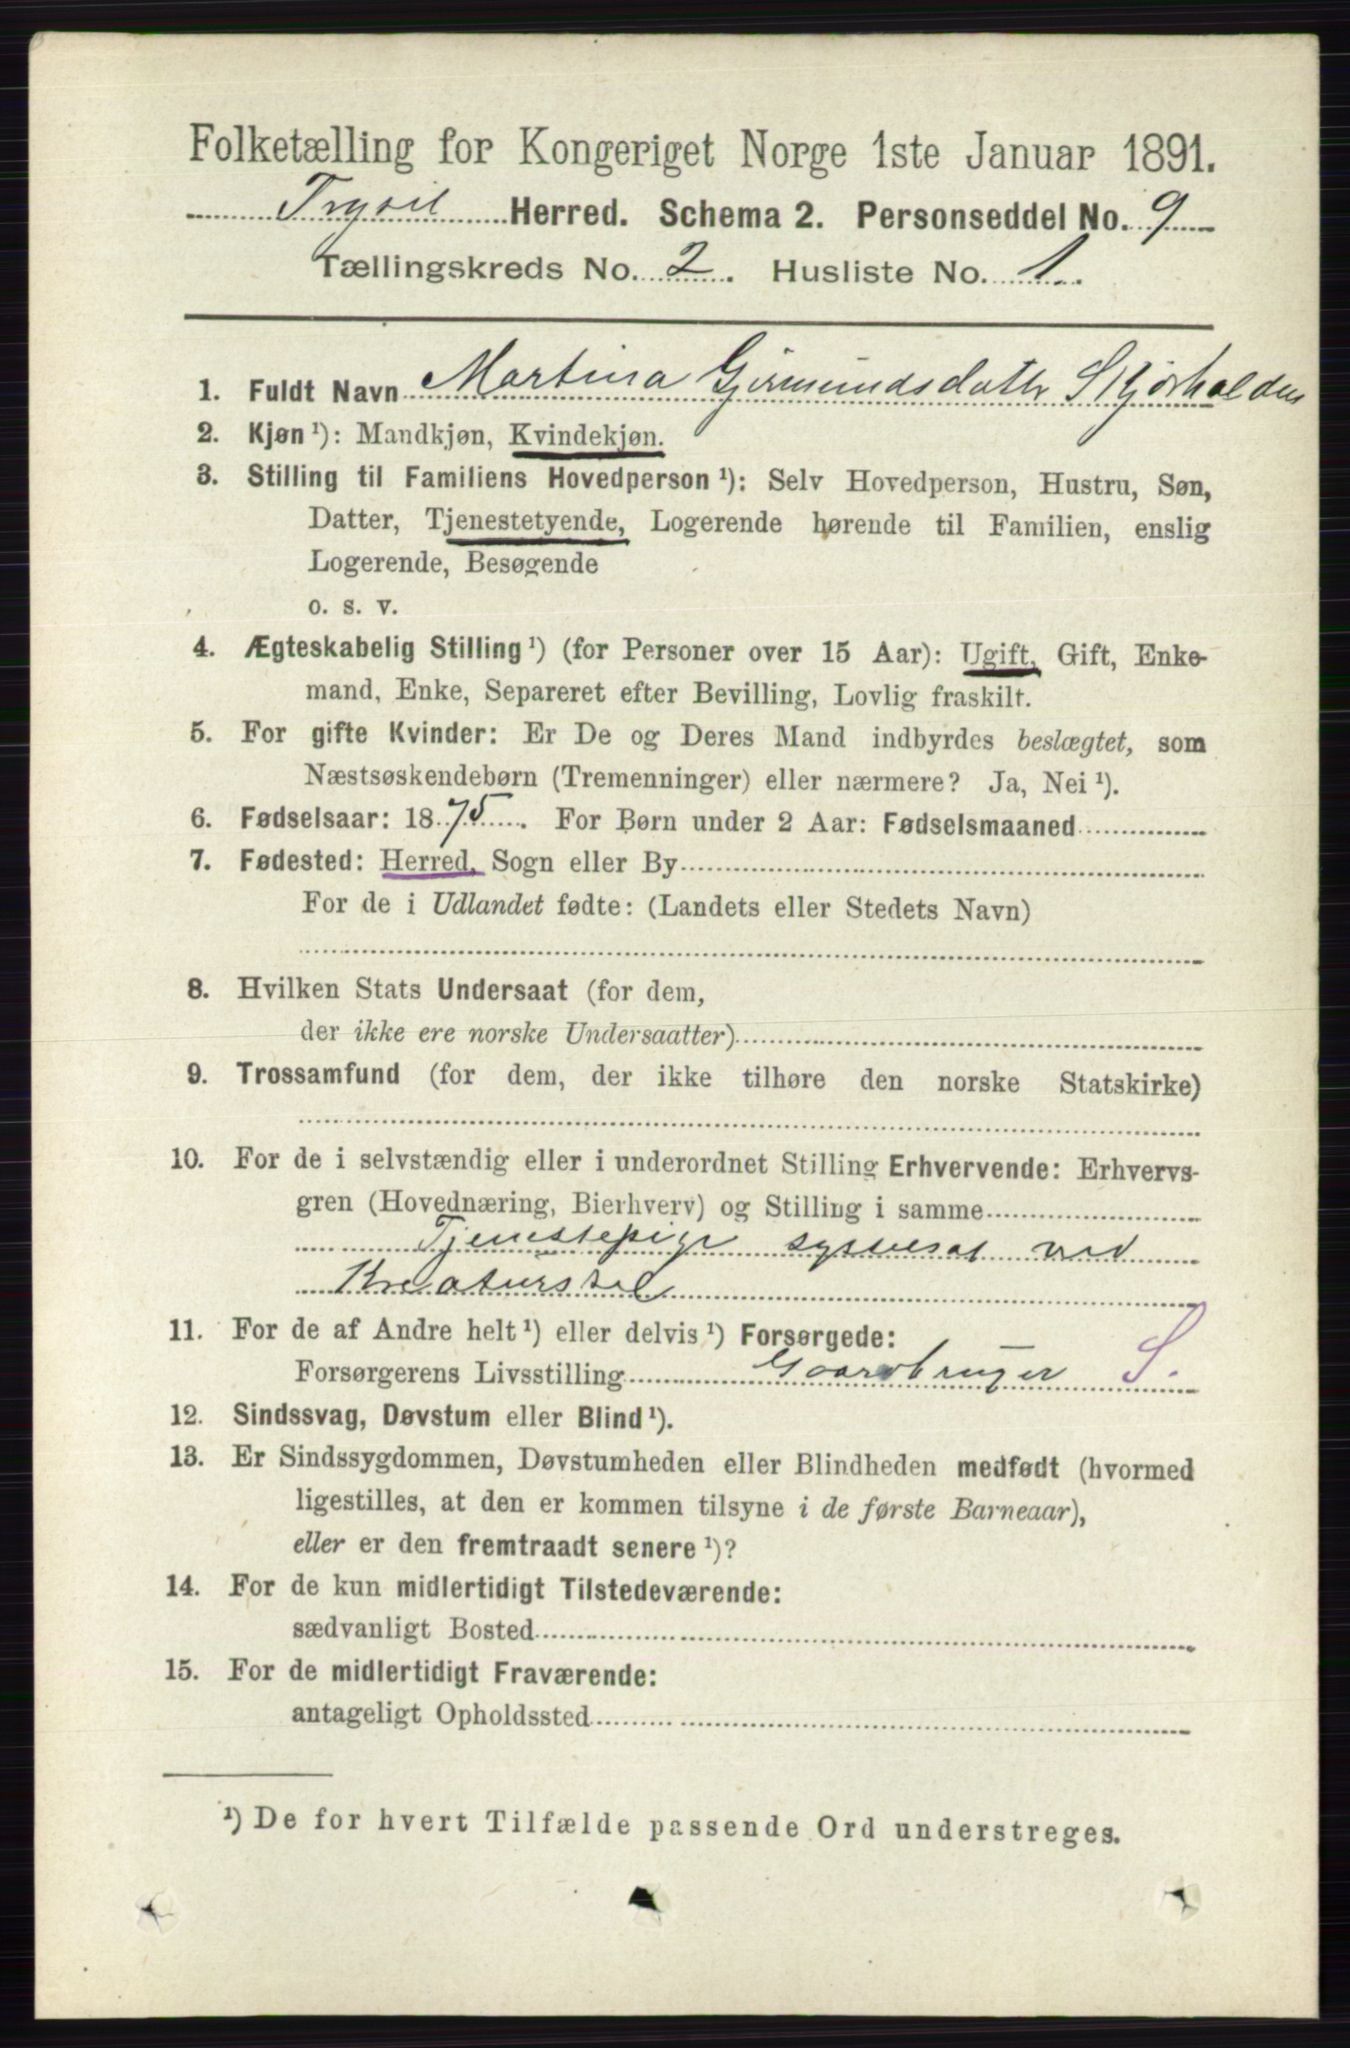 Folketælling for Kongeriget Norge 1ste Januar 1891.
Trysil Herred. Schema 2. Personseddel No. 9
Tællingskreds No. 2. Husliste No. 1.
1. Fuldt Navn Martina Gjermundsdatter Skjørholden
2. Kjøn ¹): Mandkjøn, Kvindekjøn.
3. Stilling til Familiens Hovedperson ¹): Selv Hovedperson, Hustru, Søn,
Datter, Tjenestetyende, Logerende hørende til Familien, enslig
Logerende, Besøgende
o. s. v.
4. Ægteskabelig Stilling ¹) (for Personer over 15 Aar): Ugift, Gift, Enke-
mand, Enke, Separeret efter Bevilling, Lovlig fraskilt.
5. For gifte Kvinder: Er De og Deres Mand indbyrdes beslægtet, som
Næstsøskendebørn (Tremenninger) eller nærmere? Ja, Nei ¹).
6. Fødselsaar: 1875. For Børn under 2 Aar: Fødselsmaaned
7. Fødested: Herred, Sogn eller By
For de i Udlandet fødte: (Landets eller Stedets Navn)
8. Hvilken Stats Undersaat (for dem,
der ikke ere norske Undersaatter)
9. Trossamfund (for dem, der ikke tilhøre den norske Statskirke)
10. For de i selvstændig eller i underordnet Stilling Erhvervende: Erhvervs-
gren (Hovednæring, Bierhverv) og Stilling i samme
Tjenestepige sysselsat ved
Kreaturstel
11. For de af Andre helt ¹) eller delvis ¹) Forsørgede:
Forsørgerens Livsstilling Gaardbruger S.
12. Sindssvag, Døvstum eller Blind ¹).
13. Er Sindssygdommen, Døvstumheden eller Blindheden medfødt (hvormed
ligestilles, at den er kommen tilsyne i de første Barneaar),
eller er den fremtraadt senere ¹)?
14. For de kun midlertidigt Tilstedeværende:
sædvanligt Bosted
15. For de midlertidigt Fraværende:
antageligt Opholdssted
¹) De for hvert Tilfælde passende Ord understreges.